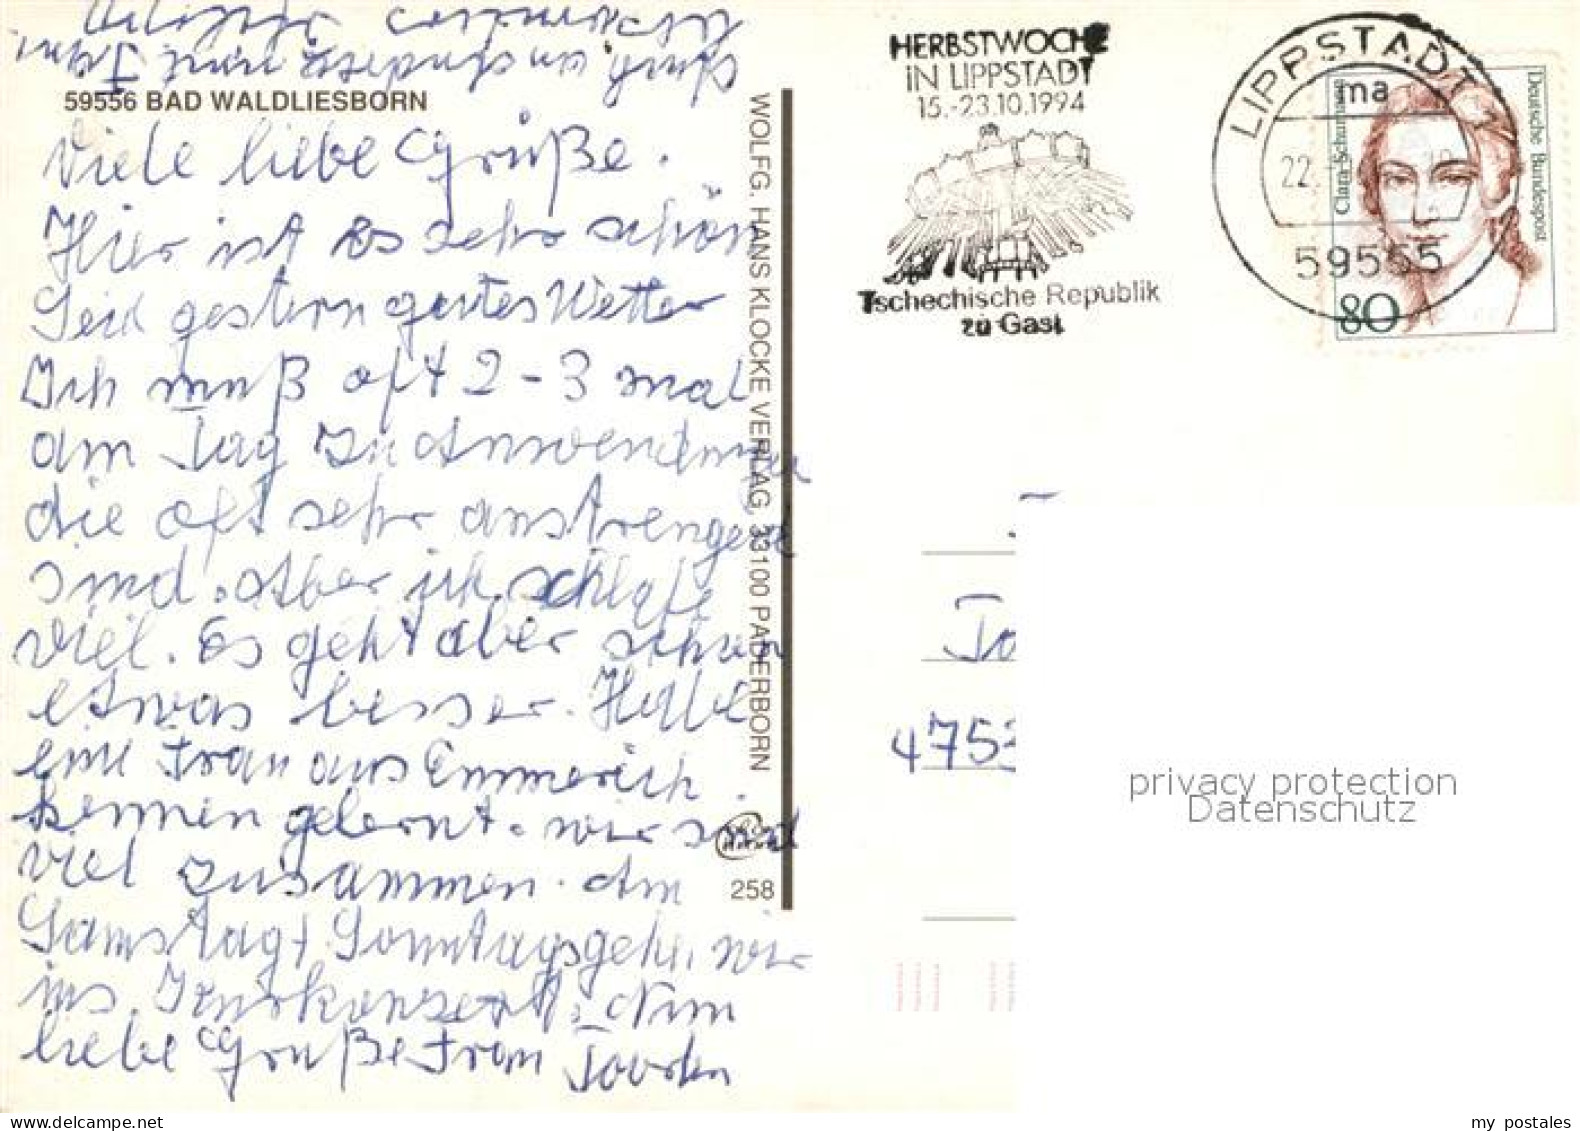 59556 BAD WALDLIESBORN
Viele liebe Grüße.
Hier ist es sehr schön
Seid gestern gutes Wetter
Ich muß oft 2-3 mal
am Tag zu Anwendungen
die oft sehr anstrengend
sind. Aber ich schlafe
viel. Es geht aber schon
etwas besser. Habe
eine Frau aus Emmerich
kennen gelernt. wir sind
viel zusammen. Am
Samstag + Sonntags gehen wir
ins Kurkonzert. Nun
liebe Grüße Frau
WOLFG. HANS KLOCKE VERLAG, 33100 PADERBORN
258
HERBSTWOCHE
IN LIPPSTADT
15.-23.10.1994
Tschechische Republik
zu Gast
LIPPSTADT 1
ma
22.
59555
Clara Schumann
Deutsche Bundespost
80
4753
privacy protection
Datenschutz
my postales